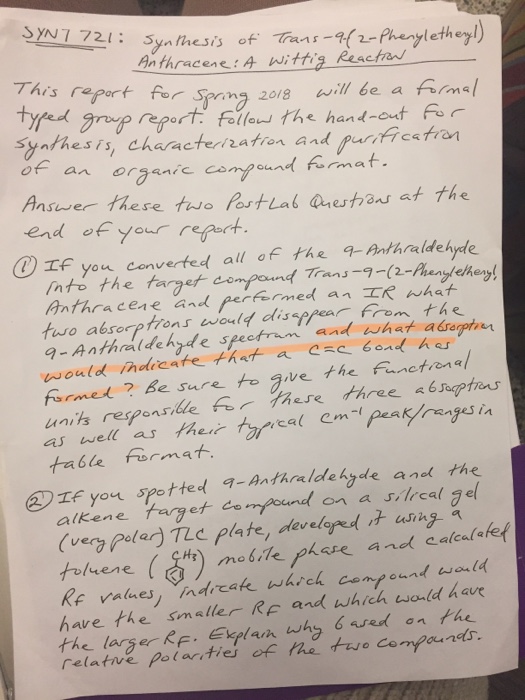 SYNT 721: Synthesis of Trans-9-(2-Phenylethenyl)
Anthracene: A Wittig Reaction
This report for Spring 2018 will be a formal
typed group report. Follow the hand-out for
synthesis, characterization and purification
of an organic compound format.
Answer these two PostLab Questions at the
end of your report.
① If you converted all of the 9-Anthraldehyde
into the target compound Trans-9-(2-Phenylethenyl)
Anthracene and performed an IR what
two absorptions would disappear from the
9-Anthraldehyde spectrum and what absorption
would indicate that a C=C bond has
formed? Be sure to give the functional
units responsible for these three absorptions
as well as their typical cm-1 peak/ranges in
table format.
② If you spotted 9-Anthraldehyde and the
alkene target compound on a silical gel
(very polar) TLC plate, developed it using a
toluene ( CH3 ) mobile phase and calculated
Rf values, indicate which compound would
have the smaller Rf and which would have
the larger Rf. Explain why based on the
relative polarities of the two compounds.